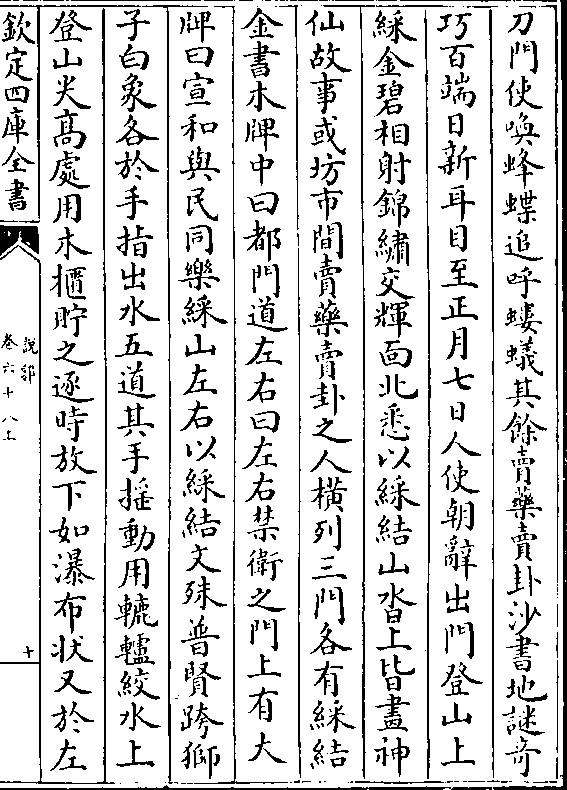 刀門使喚蜂蝶追呼螻蟻其餘賣藥賣卦沙書地謎竒
巧百端日新耳目至正月七日人使朝辭出門登山上
綵金碧相射錦繡交輝面北悉以綵結山沓上皆畫神
仙故事或坊市間賣藥賣卦之人橫列三門各有綵結
金書木牌中曰都門道左右曰左右禁衛之門上有大
牌曰宣和與民同樂綵山左右以綵結文殊普賢跨獅
子白象各於手指出水五道其手揺動用轆轤絞水上
登山尖髙處用木櫃貯之逐時放下如瀑布狀又於左
欽定四庫全書
說郛
卷六十八上
十